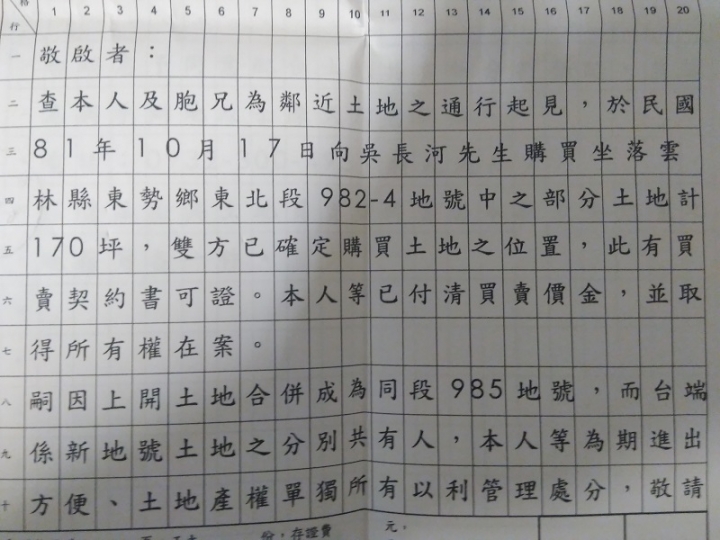 格 1 2 3 4 5 6 7 8 9 10 11 12 13 14 15 16 17 18 19 20
行
一 敬啟者：
二 查本人及胞兄為鄰近土地之通行起見，於民國
三 81年10月17日向吳長河先生購買坐落雲
四 林縣東勢鄉東北段982-4地號中之部分土地計
五 170坪，雙方已確定購買土地之位置，此有買
六 賣契約書可證。本人等已付清買賣價金，並取
七 得所有權在案。
八 嗣因上開土地合併成為同段985地號，而台端
九 係新地號土地之分別共有人，本人等為期進出
十 方便、土地產權單獨所有以利管理處分，敬請
份，存證費 元，